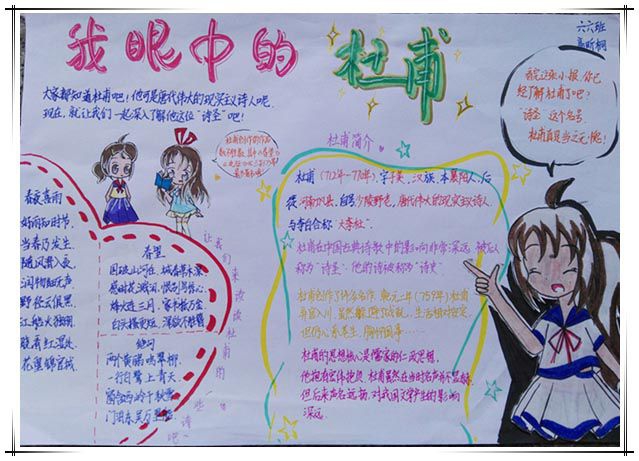 我眼中的杜甫
六六班
大家都知道杜甫吧!他可是唐代伟大的现实主义诗人呢
现在,就让我们一起深入了解他这位“诗圣”吧!
看完这张小报,你已
经了解杜甫了吧?
“诗圣”这个名号,
杜甫真是当之无愧!
杜甫简介
杜甫(712年—770年),字子美,汉族,本襄阳人,后
徙河南巩县,自号少陵野老,唐代伟大的现实主义诗人,
与李白合称“大李杜”。
杜甫在中国古典诗歌中的影响非常深远,被后人
称为“诗圣”,他的诗被称为“诗史”。
杜甫创作了
乾元二年(759年)杜甫
弃官入川,虽然躲避了战乱,生活相对安定,
但仍心系苍生,胸怀国事……
杜甫的思想核心是儒家的仁政思想,
他抱有宏伟抱负,杜甫虽然在当时名声并不显赫,
但后来声名远扬,对我国文学产生的影响
深远。
春夜喜雨
好雨知时节,
当春乃发生。
随风潜入夜,
润物细无声。
野径云俱黑,
江船火独明。
晓看红湿处,
花重锦官城。
春望
国破山河在,城春草木深。
感时花溅泪,恨别鸟惊心。
烽火连三月,家书抵万金。
白头搔更短,浑欲不胜簪。
绝句
两个黄鹂鸣翠柳,
一行白鹭上青天。
窗含西岭千秋雪,
门泊东吴万里船。
让我们来读读杜甫的一些诗吧